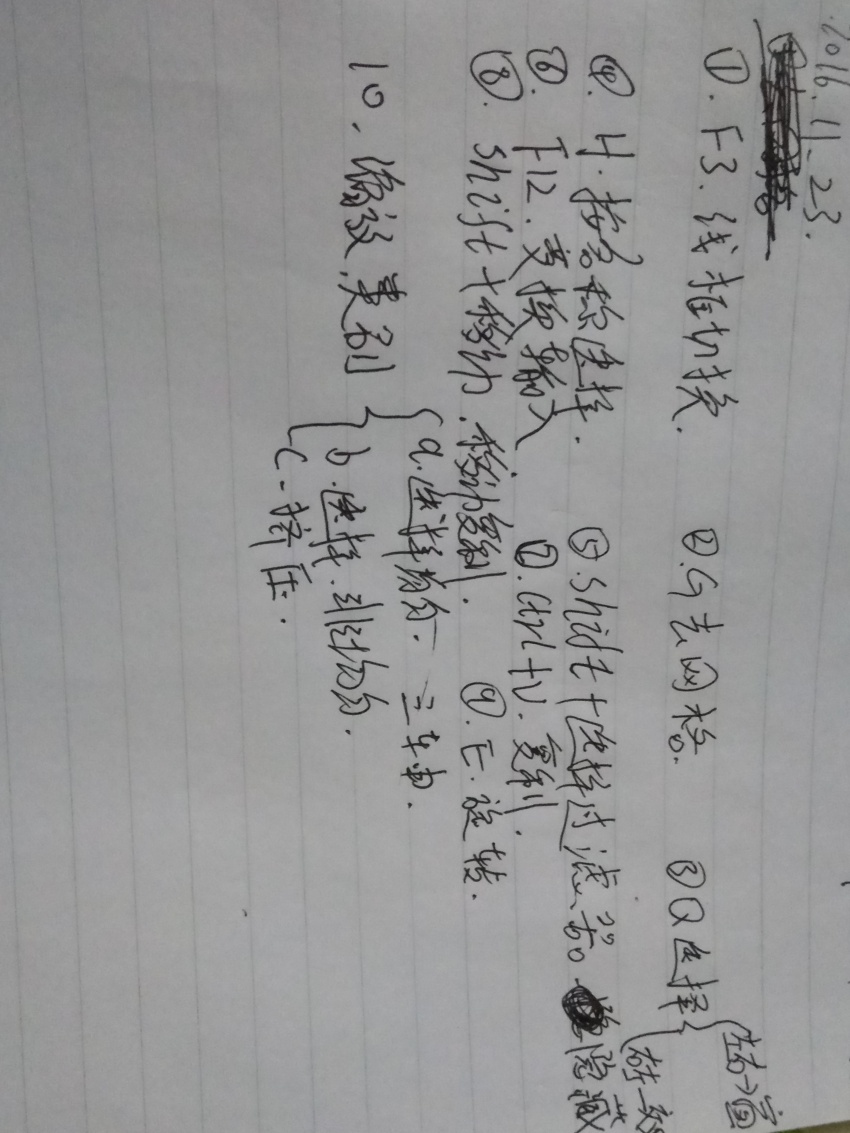 2016.11.23.
①. F3. 线框切换. ②. G去网格. ③Q选择 { 左→窗
右→
④. H. 按名称选择. ⑤shift+选择过滤器. 隐藏
⑥. F12. 变换输入. ⑦. ctrl+v. 复制.
⑧. shift+移动. 移动复制. ⑨. E. 旋转.
10. 缩放类别 { a. 选择均匀. 三轴.
b. 选择. 非均匀.
c. 挤压.